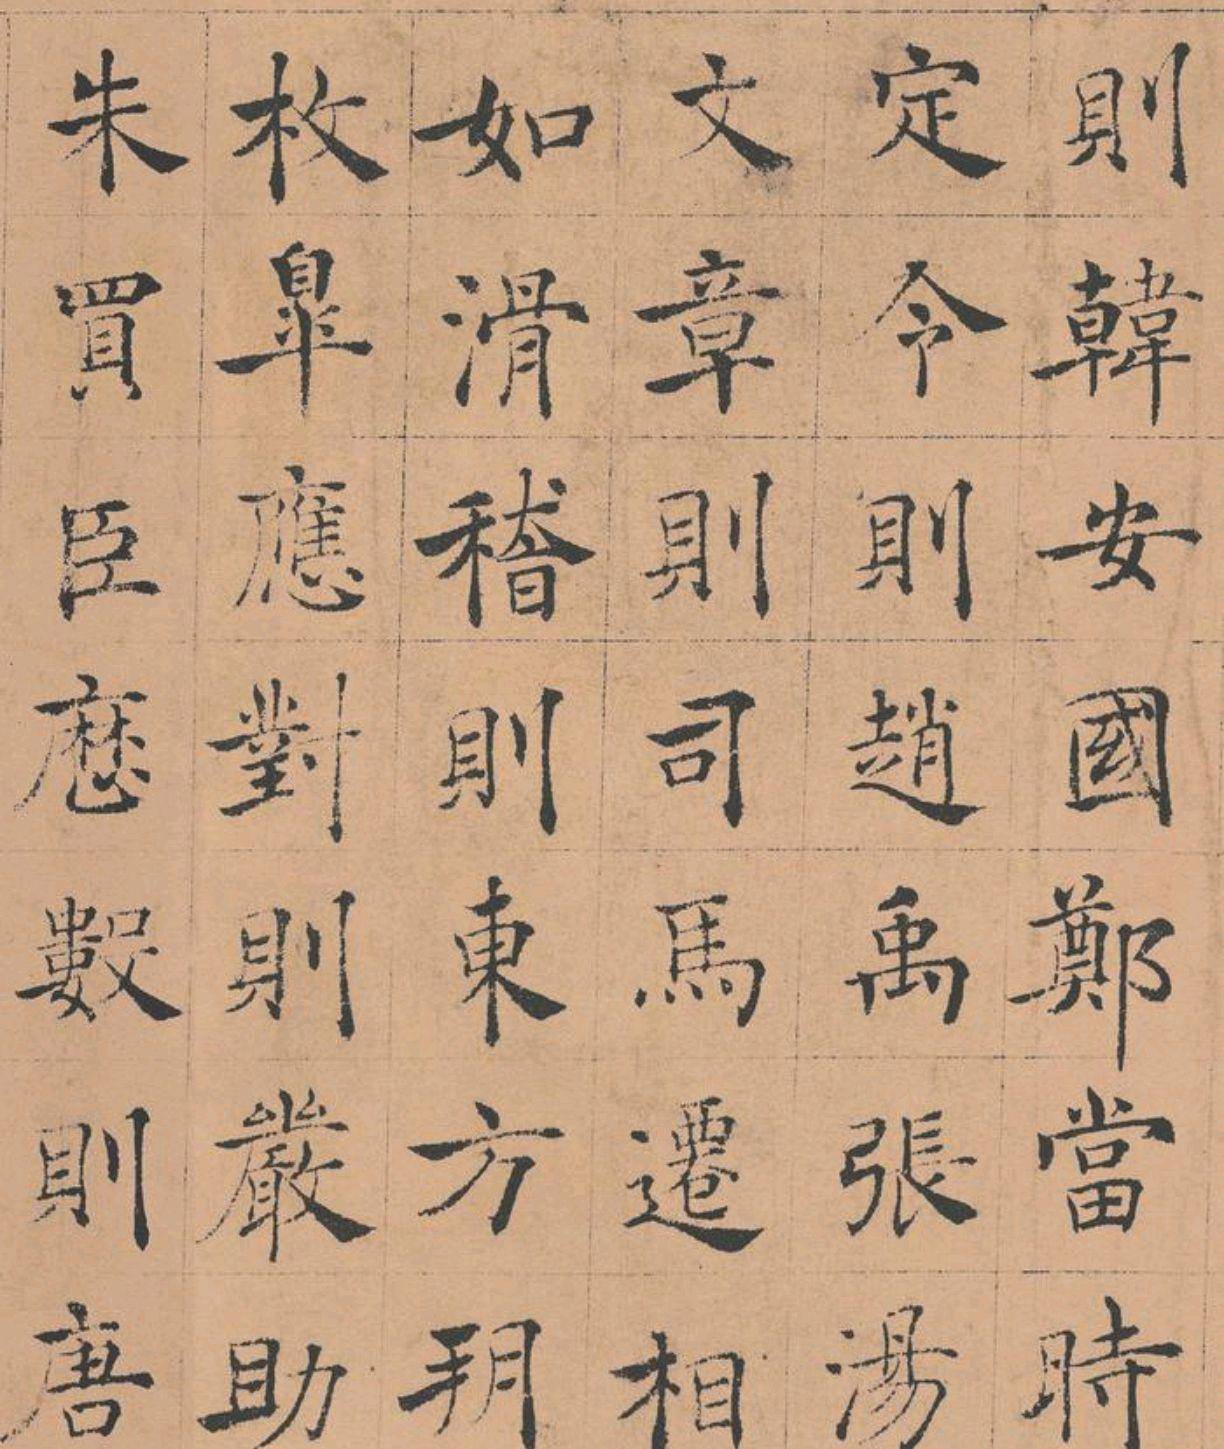 則韓安國鄭當時
定令則趙禹張湯
文章則司馬遷相
如滑稽則東方朔
枚皐應對則嚴助
朱買臣厯數則唐